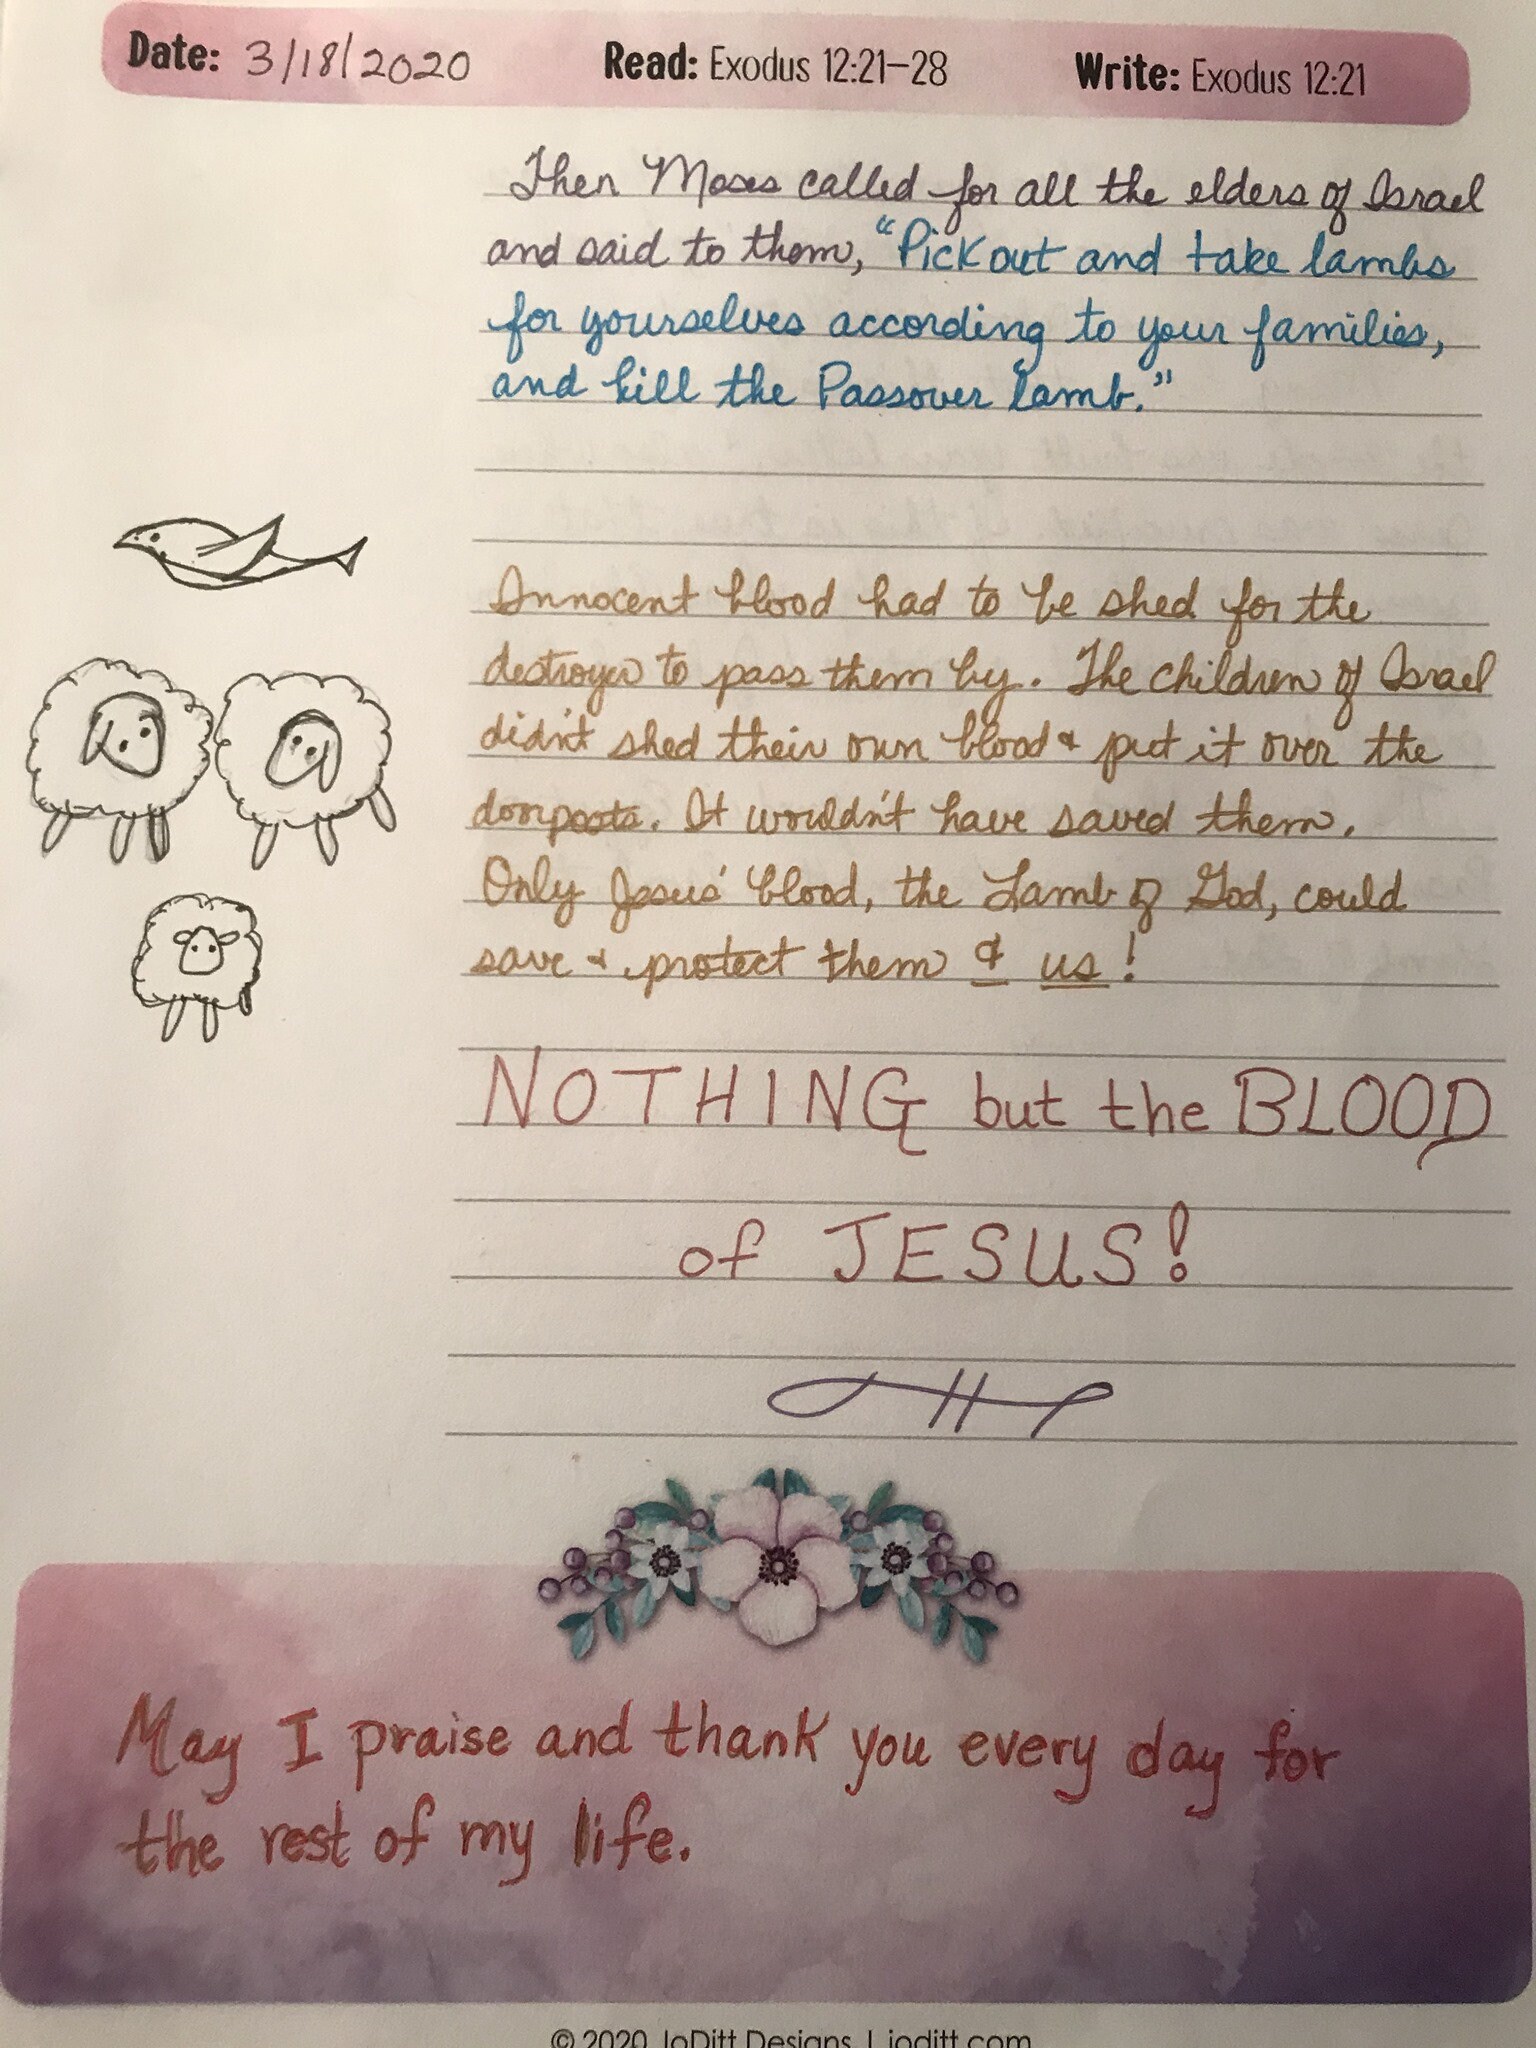 Date: 3/18/2020 Read: Exodus 12:21–28 Write: Exodus 12:21
Then Moses called for all the elders of Israel
and said to them, "Pick out and take lambs
for yourselves according to your families,
and kill the Passover lamb."
Innocent blood had to be shed for the
destroyer to pass them by. The children of Israel
didn't shed their own blood & put it over the
doorposts. It wouldn't have saved them.
Only Jesus' blood, the Lamb of God, could
save & protect them & us!
NOTHING but the BLOOD
of JESUS!
May I praise and thank you every day for
the rest of my life.
© 2020 JoDitt Designs | joditt.com